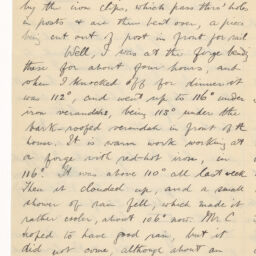 by the iron clips, which pass thro' holes
in posts & are then bent over, a piece
being cut out of post in front for rail
Well, I was at the forge bending
these for about four hours, and
when I knocked off for dinner it
was 112°, and went up to 116° under
iron verandahs, being 118° under the
bark-roofed verandah in front of the
house. It is warm work working at
a forge with red-hot iron, in
116°. It was above 110° all last week
Then it clouded up, and a small
shower of rain fell, which made it
rather cooler, about 106° now. Mr. C
hoped to have good rain, but it
did not come, although about an